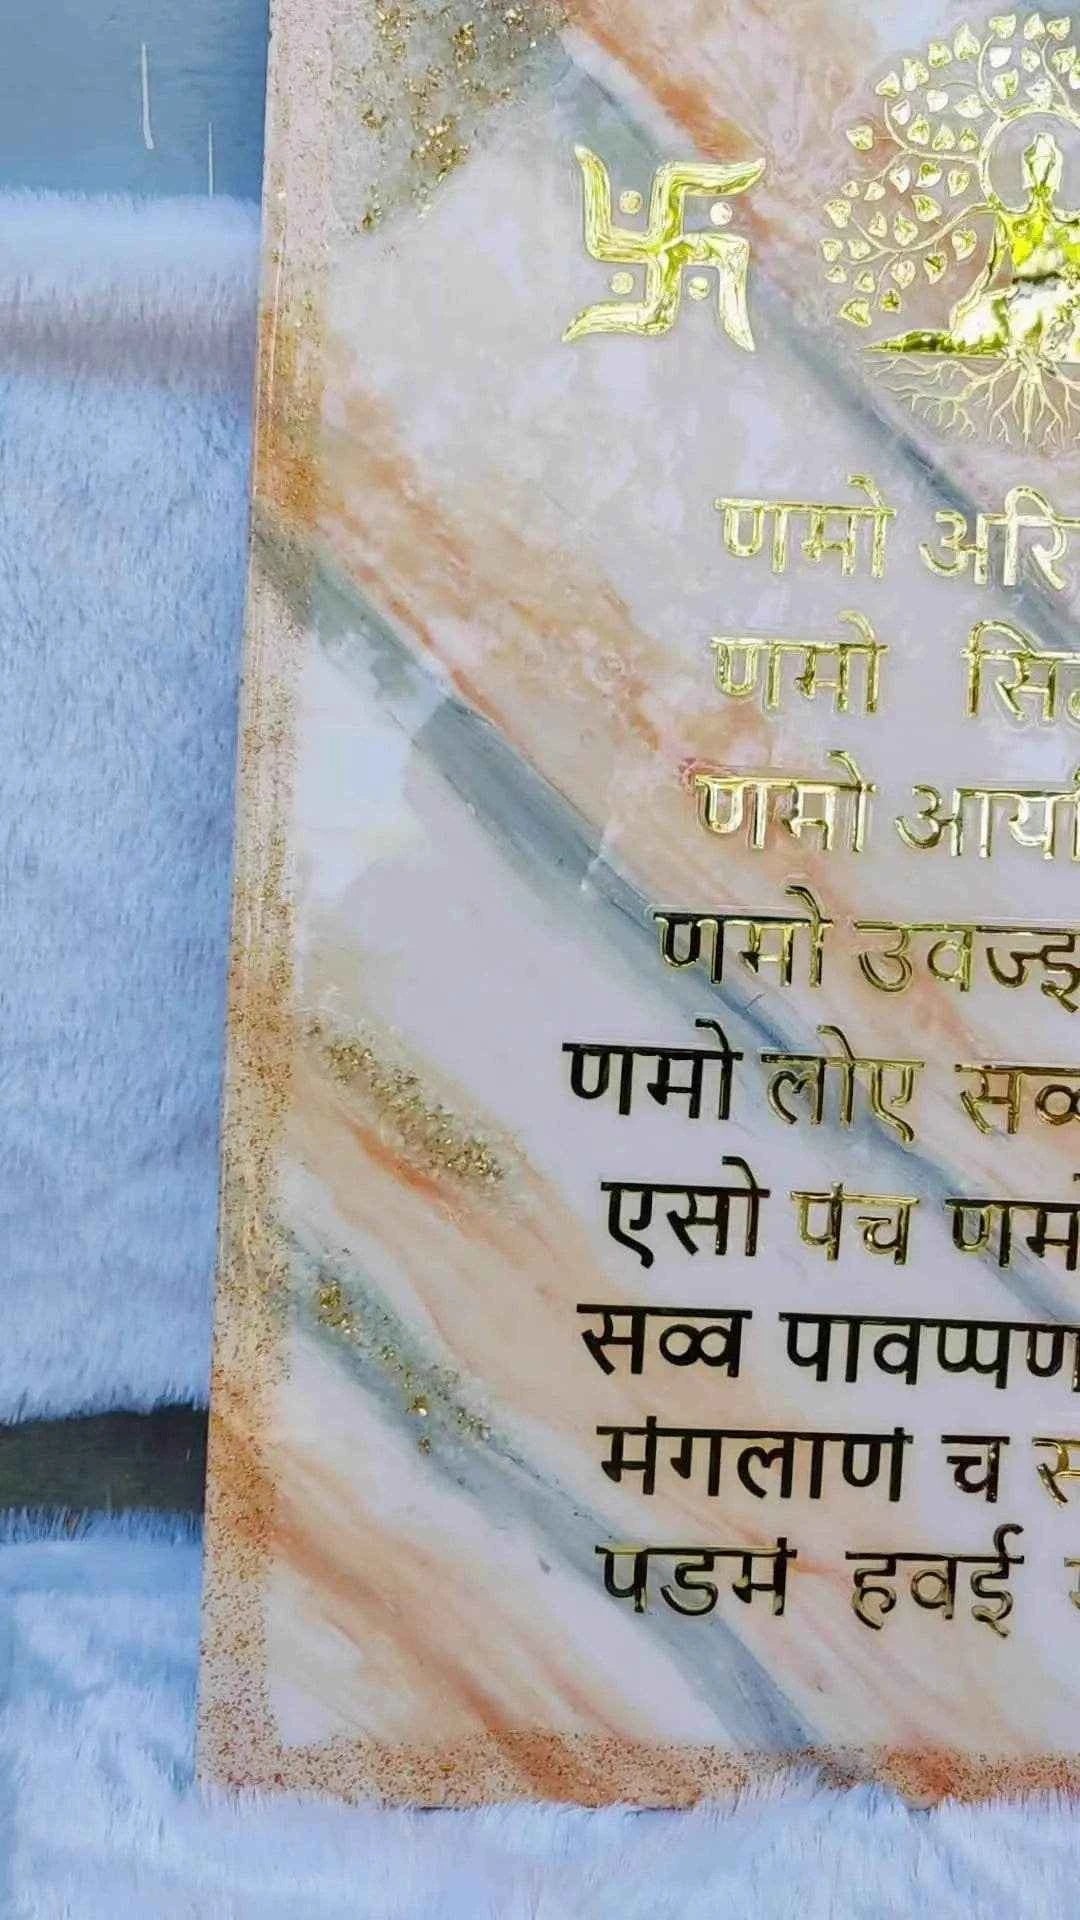 णमो अरि
णमो सि
णमो आयरि
णमो उवज्झ
णमो लोए सव्व
एसो पंच णमो
सव्व पावप्पण
मंगलाणं च स
पडमं हवई